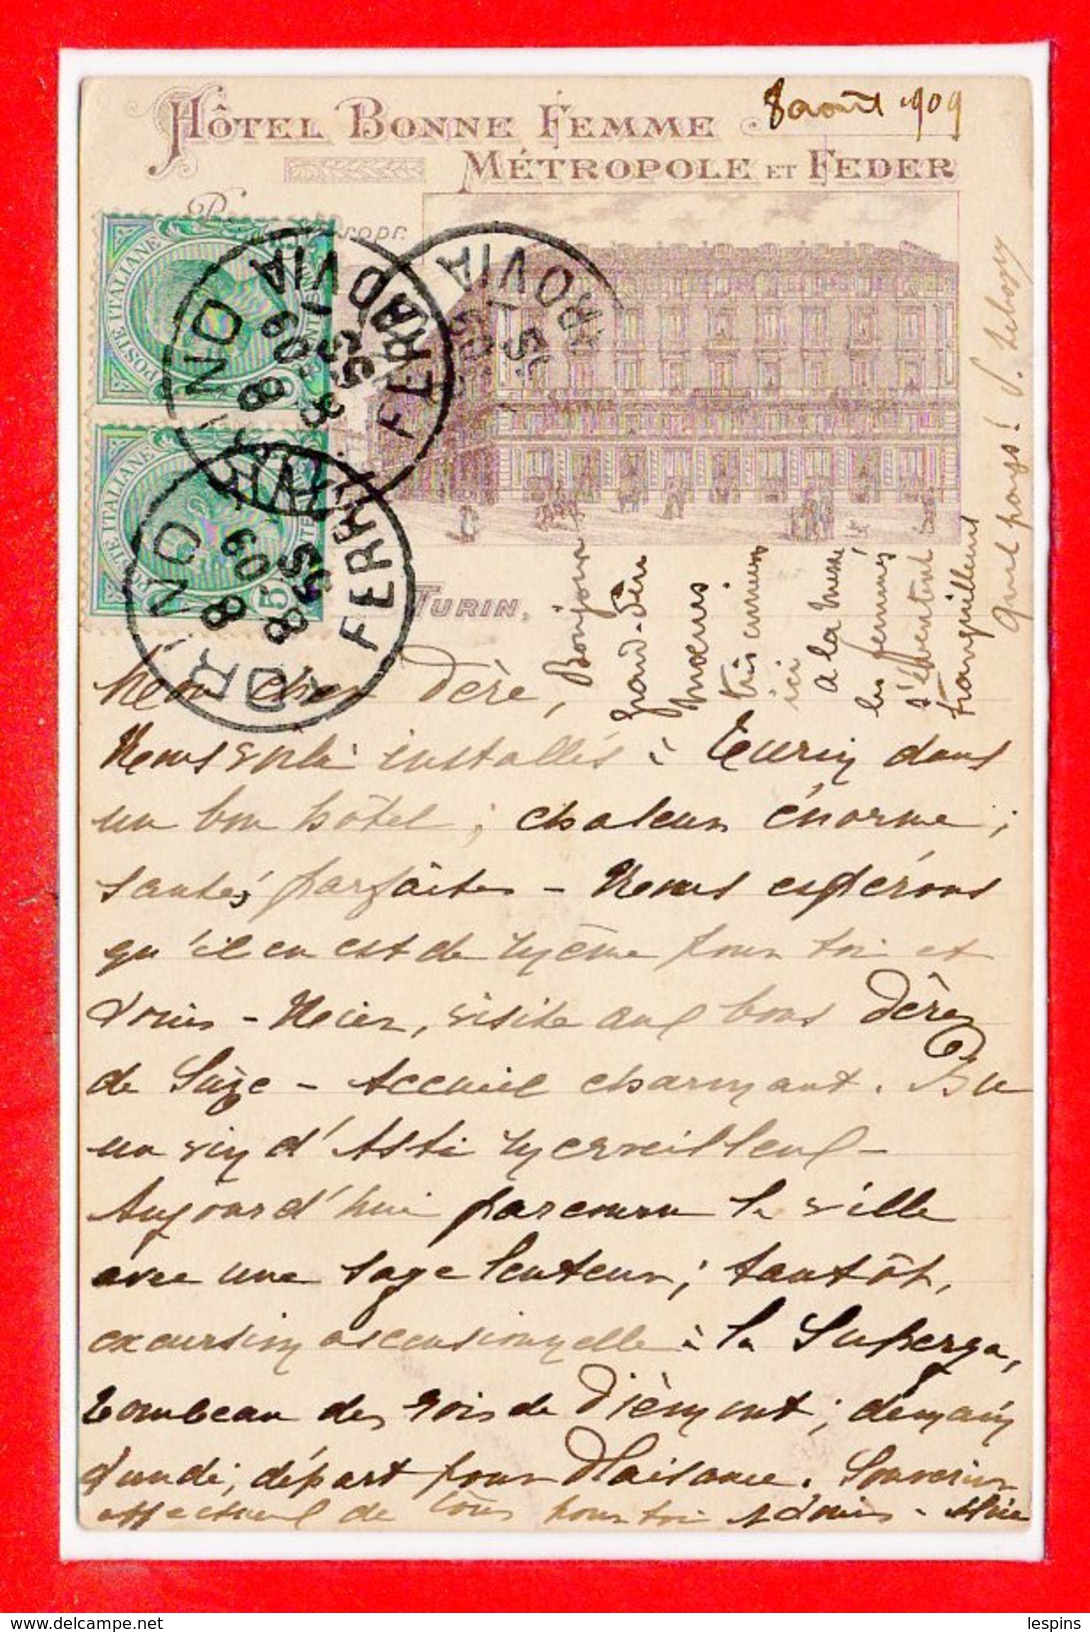 HÔTEL BONNE FEMME
8 août 1909
MÉTROPOLE ET FEDER
propr.
POSTE ITALIANE
TORINO FERROVIA
8 8 09
TURIN,
Mon cher Père,
Nous voilà installés à Turin dans
un bon hôtel ; chaleur énorme ;
santés parfaites - Nous espérons
qu'il en est de même pour toi et
Louis - Hier, visite aux bons Pères
de Suze - Accueil charmant. Bu
un vin d'Asti merveilleux -
Aujourd'hui parcouru la ville
avec une sage lenteur ; tantôt,
excursion ascensionnelle à la Superga,
tombeau des rois de Piémont ; demain
Lundi, départ pour Plaisance. Souvenirs
affectueux de tous pour toi et Louis -
Bonjour
grand-père
mœurs
ici
à la messe
les femmes
s'éventent
tranquillement
Quel pays !
lespins